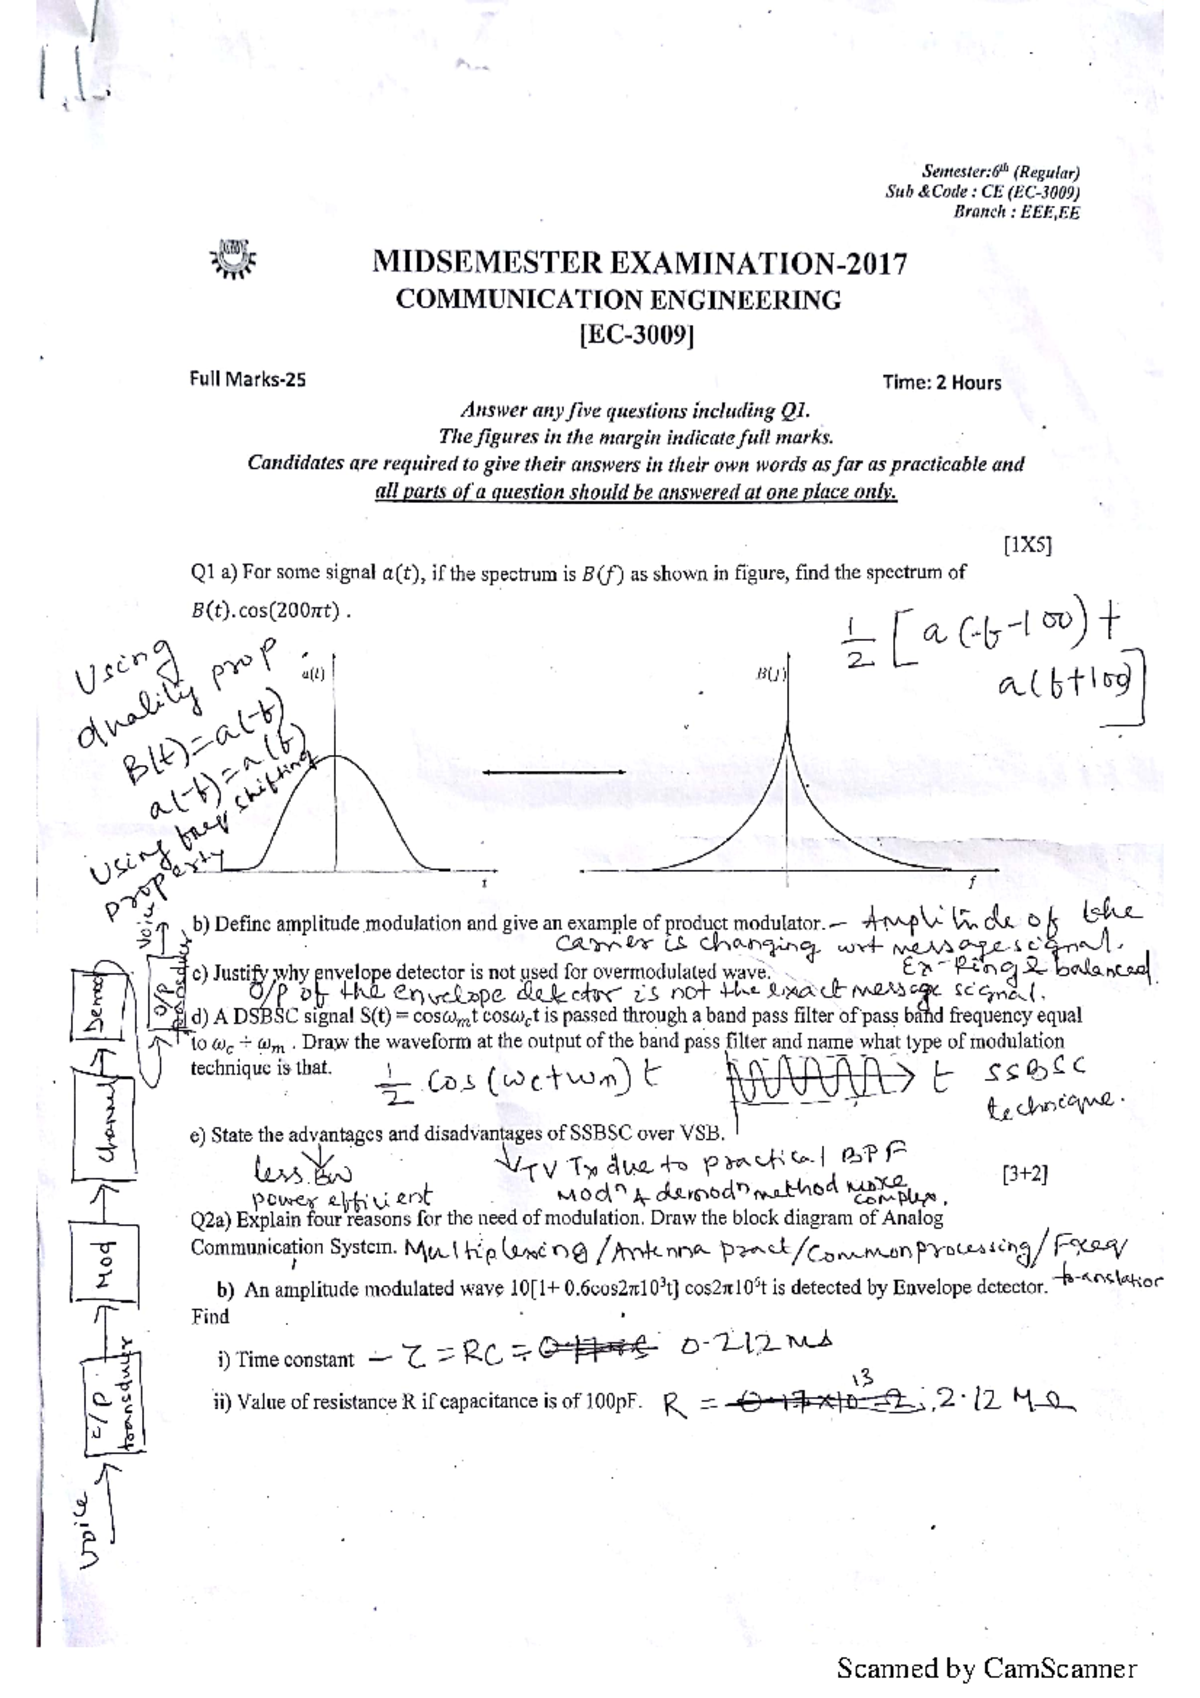 Semester:6th (Regular)
Sub &Code : CE (EC-3009)
Branch : EEE,EE
MIDSEMESTER EXAMINATION-2017
COMMUNICATION ENGINEERING
[EC-3009]
Full Marks-25
Time: 2 Hours
Answer any five questions including Q1.
The figures in the margin indicate full marks.
Candidates are required to give their answers in their own words as far as practicable and
all parts of a question should be answered at one place only.
[1X5]
Q1 a) For some signal a(t), if the spectrum is B(f) as shown in figure, find the spectrum of
B(t).cos(200πt) .
1/2 [a(-f-100) +
a(f+100)]
Using
duality prop
B(t)=a(-f)
a(-f)=a(f)
Using freq shifting
property
a(t)
B(f)
t
f
b) Define amplitude modulation and give an example of product modulator. – Amplitude of the
carrier is changing wrt message signal.
Ex- Ring & balanced
c) Justify why envelope detector is not used for overmodulated wave.
O/P of the envelope detector is not the exact message signal.
d) A DSBSC signal S(t) = cosωmt cosωct is passed through a band pass filter of pass band frequency equal
to ωc + ωm . Draw the waveform at the output of the band pass filter and name what type of modulation
technique is that.
1/2 cos(ωc+ωm)t
t
SSBSC
technique.
e) State the advantages and disadvantages of SSBSC over VSB.
less BW
power efficient
TV Tx due to practical BPF
Modn & demodn method more
complex.
[3+2]
Q2a) Explain four reasons for the need of modulation. Draw the block diagram of Analog
Communication System. Multiplexing/Antenna pract/Common processing/Freq
translation
b) An amplitude modulated wave 10[1+ 0.6cos2π10³t] cos2π10⁶t is detected by Envelope detector.
Find
i) Time constant – τ = RC = 0.212 ms
ii) Value of resistance R if capacitance is of 100pF. R = 2.12 MΩ
voice
i/P
transducer
Mod
Channel
Demod
O/P
transducer
voice
Scanned by CamScanner